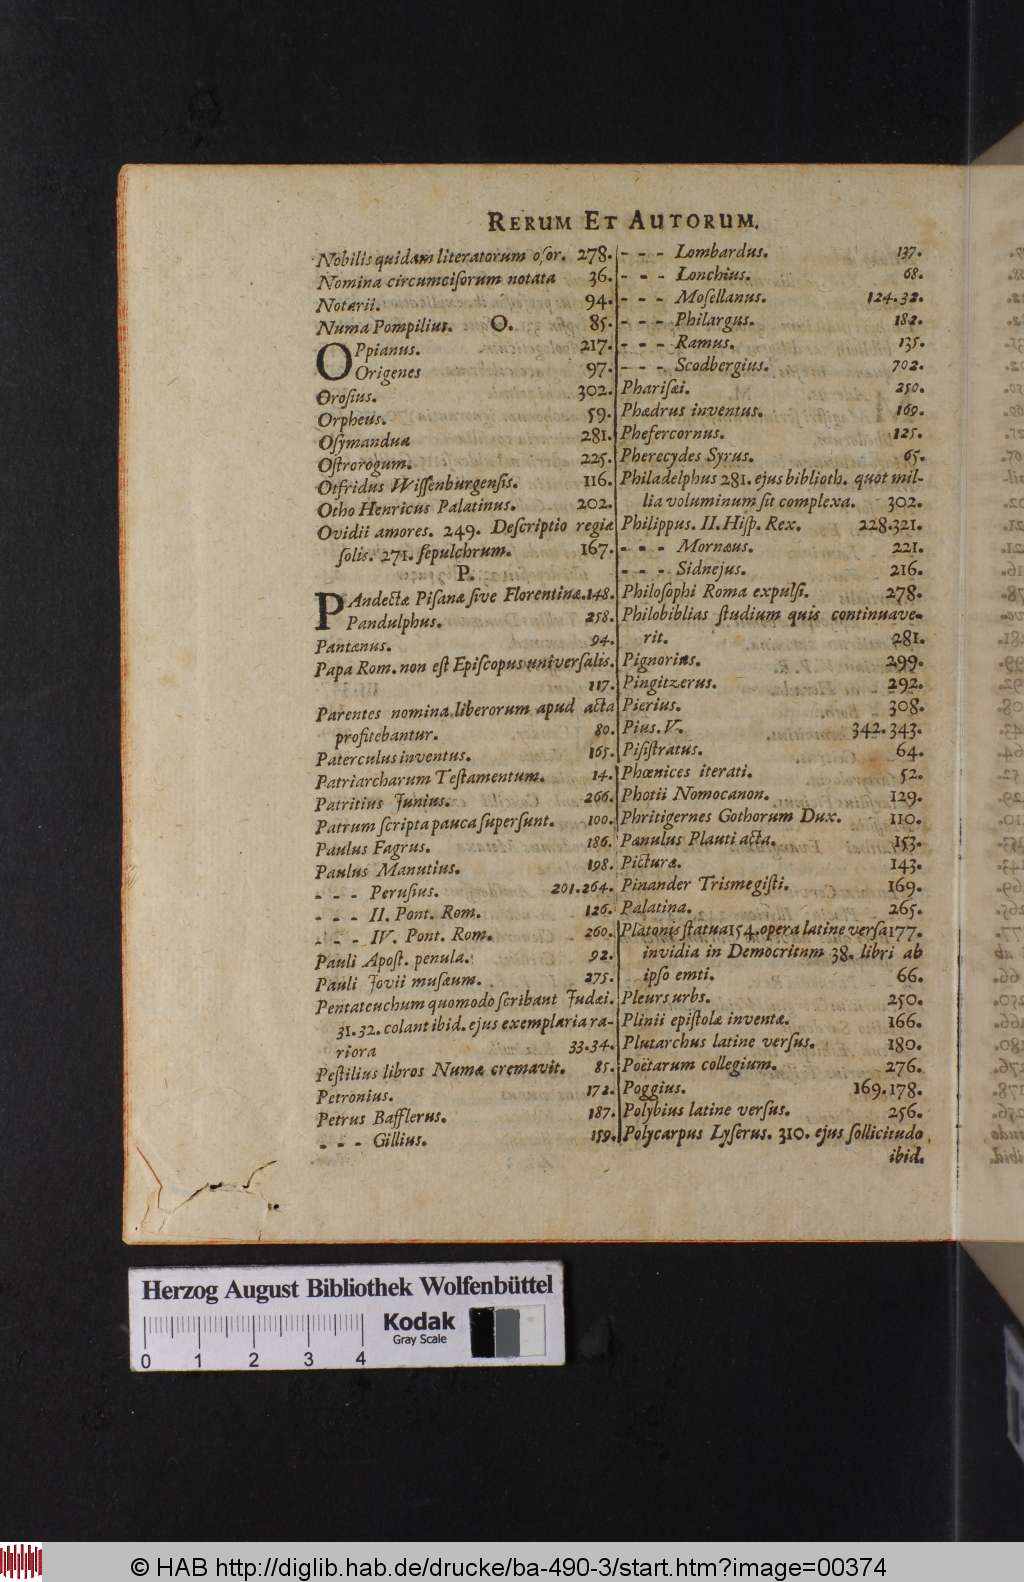 RERUM ET AUTORUM.
Nobilis quidam literatorum osor. 278.
Nomina circumcisorum notata 36.
Notarii. 94.
Numa Pompilius. 85.
O.
OPpianus. 217.
Origenes 97.
Orosius. 302.
Orpheus. 59.
Osymandua 281.
Ostrorogum. 225.
Otfridus Wissenburgensis. 116.
Otho Henricus Palatinus. 202.
Ovidii amores. 249. Descriptio regiæ
solis. 271. sepulchrum. 167.
P.
PAndectæ Pisanæ sive Florentinæ. 148.
Pandulphus. 258.
Pantænus. 94.
Papa Rom. non est Episcopus universalis.
117.
Parentes nomina liberorum apud acta
profitebantur. 80.
Paterculus inventus. 165.
Patriarcharum Testamentum. 14.
Patritius Junius. 266.
Patrum scripta pauca supersunt. 100.
Paulus Fagrus. 186.
Paulus Manutius. 198.
- - - Perusius. 201.264.
- - - II. Pont. Rom. 126.
- - - IV. Pont. Rom. 260.
Pauli Apost. penula. 92.
Pauli Jovii musæum. 275.
Pentateuchum quomodo scribant Judæi.
31.32. colant ibid. ejus exemplaria ra-
riora 33.34.
Pestilius libros Numæ cremavit. 85.
Petronius. 172.
Petrus Bafflerus. 187.
- - - Gillius. 159.
- - - Lombardus. 137.
- - - Lonchius. 68.
- - - Mosellanus. 124.32.
- - - Philargus. 182.
- - - Ramus. 135.
- - - Scodbergius. 702.
Pharisæi. 250.
Phædrus inventus. 169.
Phefercornus. 125.
Pherecydes Syrus. 65.
Philadelphus 281. ejus biblioth. quot mil-
lia voluminum sit complexa. 302.
Philippus. II. Hisp. Rex. 228.321.
- - - Mornæus. 221.
- - - Sidnejus. 216.
Philosophi Roma expulsi. 278.
Philobiblias studium quis continuave-
rit. 281.
Pignorius. 299.
Pingitzerus. 292.
Pierius. 308.
Pius. V. 342.343.
Pisistratus. 64.
Phœnices iterati. 52.
Photii Nomocanon. 129.
Phritigernes Gothorum Dux. 110.
Pænulus Plauti acta. 153.
Picturæ. 143.
Pinander Trismegisti. 169.
Palatina. 265.
Platonis statua 154. opera latine versa 177.
invidia in Democritum 38. libri ab
ipso emti. 66.
Pleurs urbs. 250.
Plinii epistolæ inventæ. 166.
Plutarchus latine versus. 180.
Poëtarum collegium. 276.
Poggius. 169.178.
Polybius latine versus. 256.
Polycarpus Lyserus. 310. ejus sollicitudo
ibid.
Herzog August Bibliothek Wolfenbüttel
Kodak
Gray Scale
0 1 2 3 4
© HAB http://diglib.hab.de/drucke/ba-490-3/start.htm?image=00374